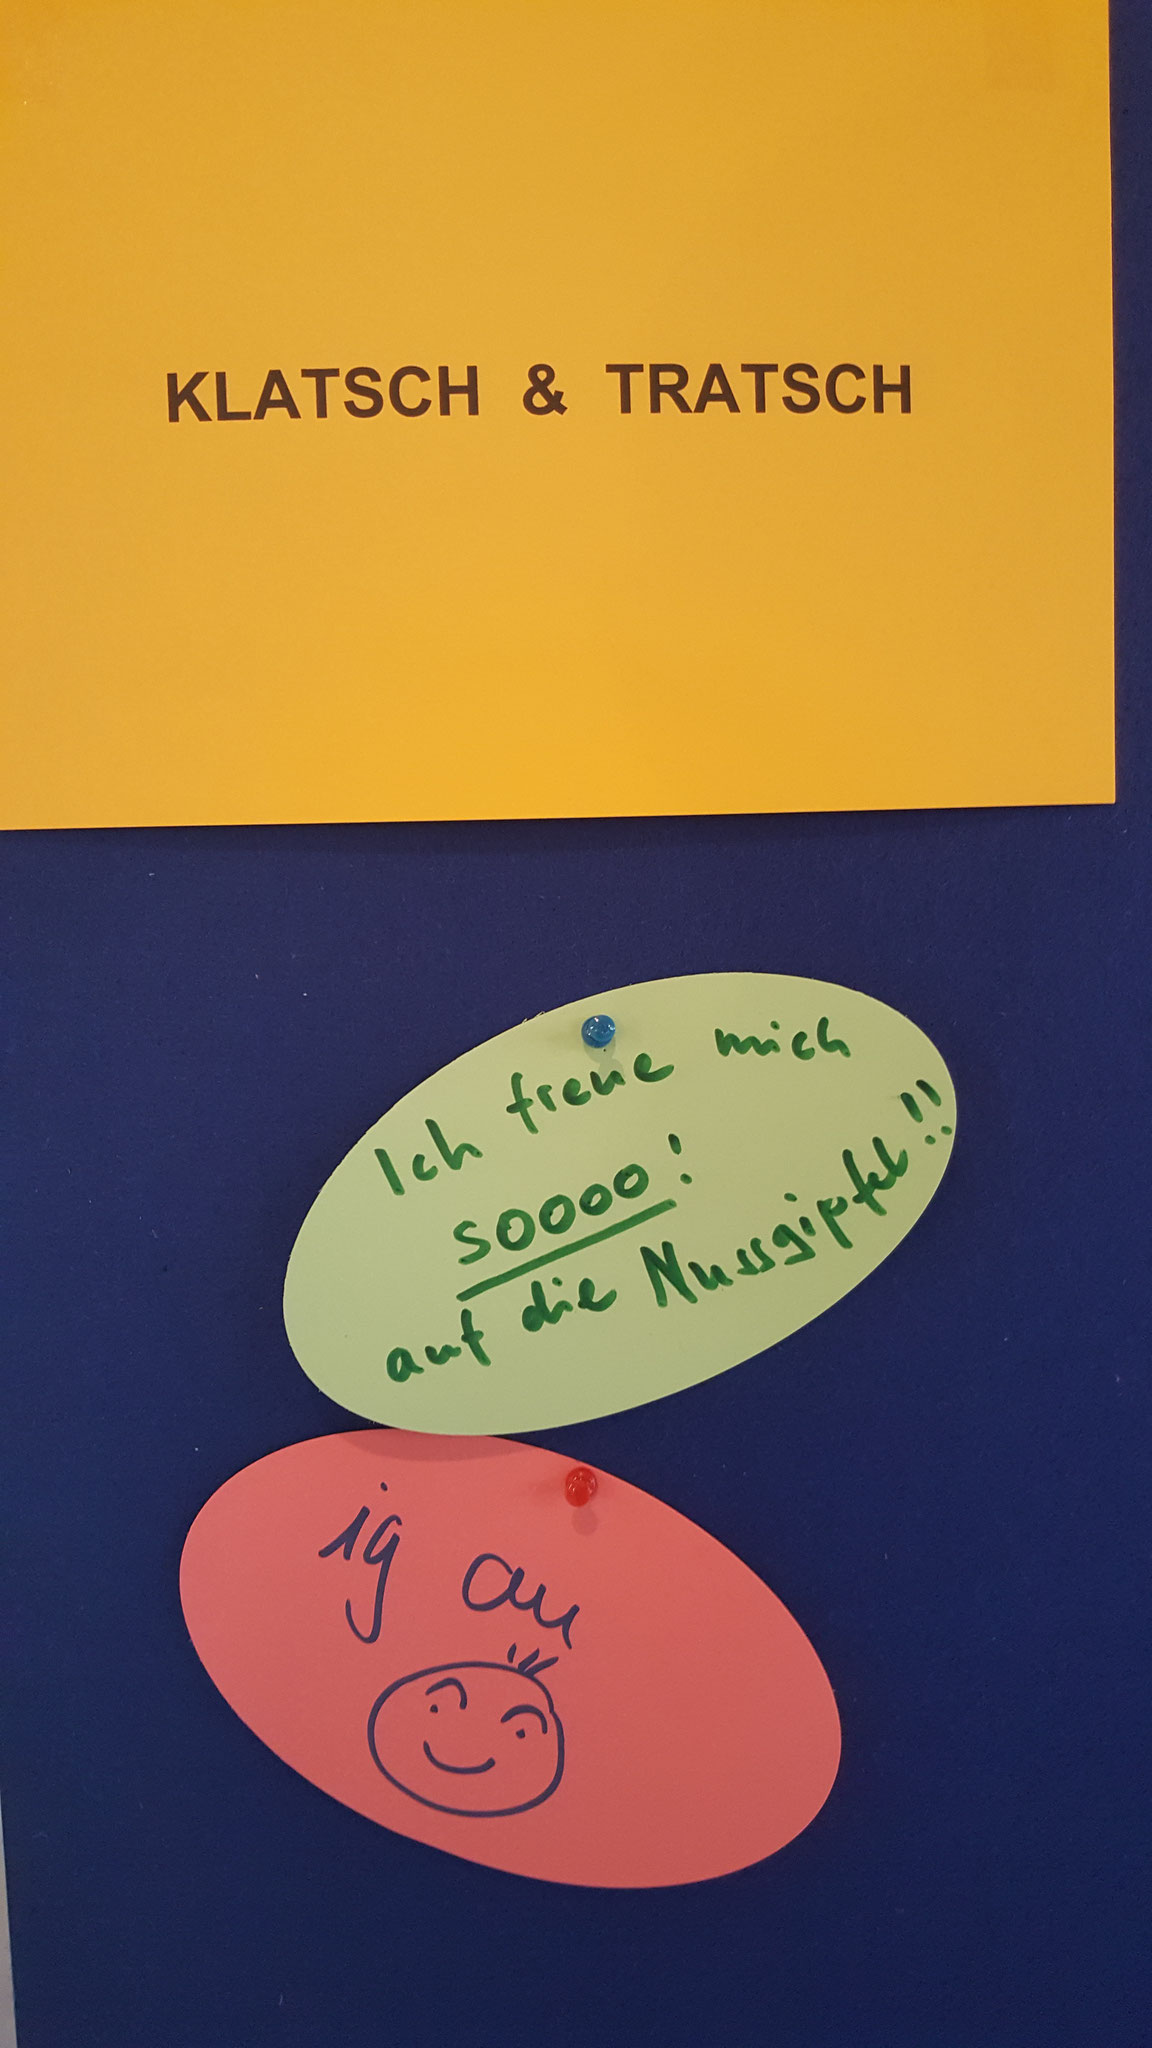 KLATSCH & TRATSCH
Ich freue mich
soooo!
auf die Nussgipfel!!
ig au